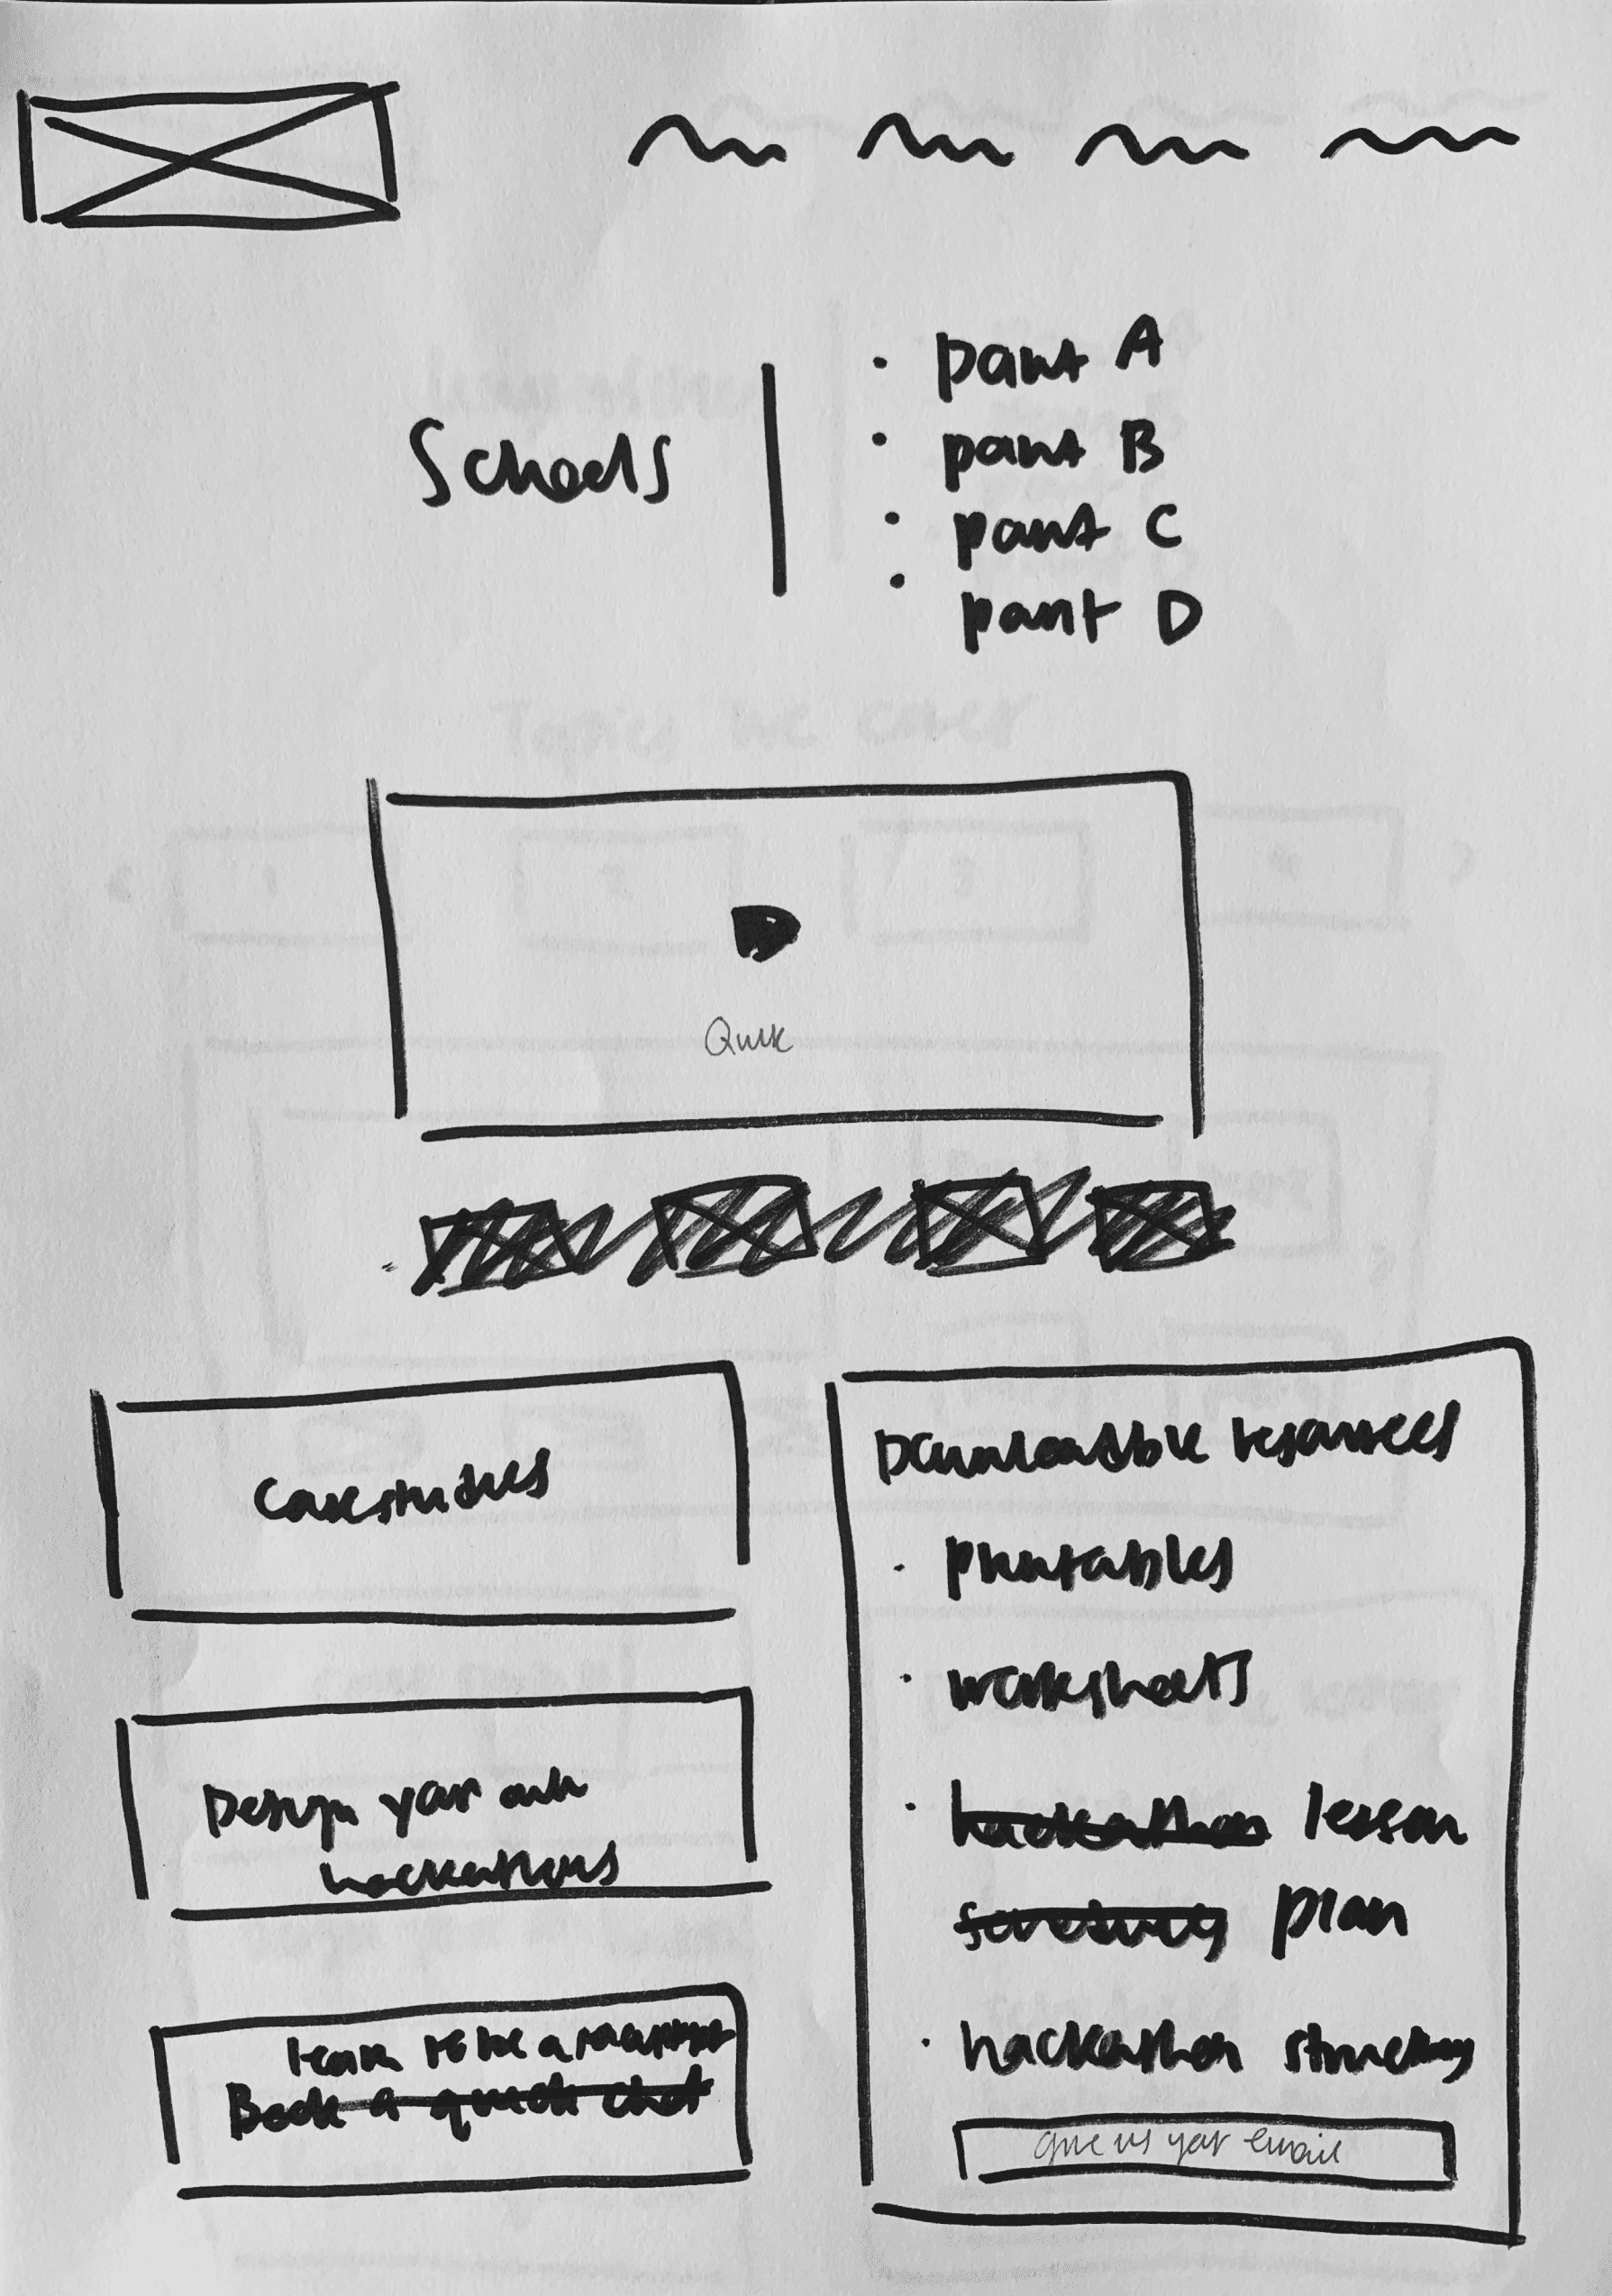 Schools
· point A
· point B
· point C
· point D
Quick
Case studies
Design your own
hackathons
learn to be a
Book a quick chat
Downloadable resources
· printables
· worksheets
· hackathon lesson
plan
· hackathon
give us your email